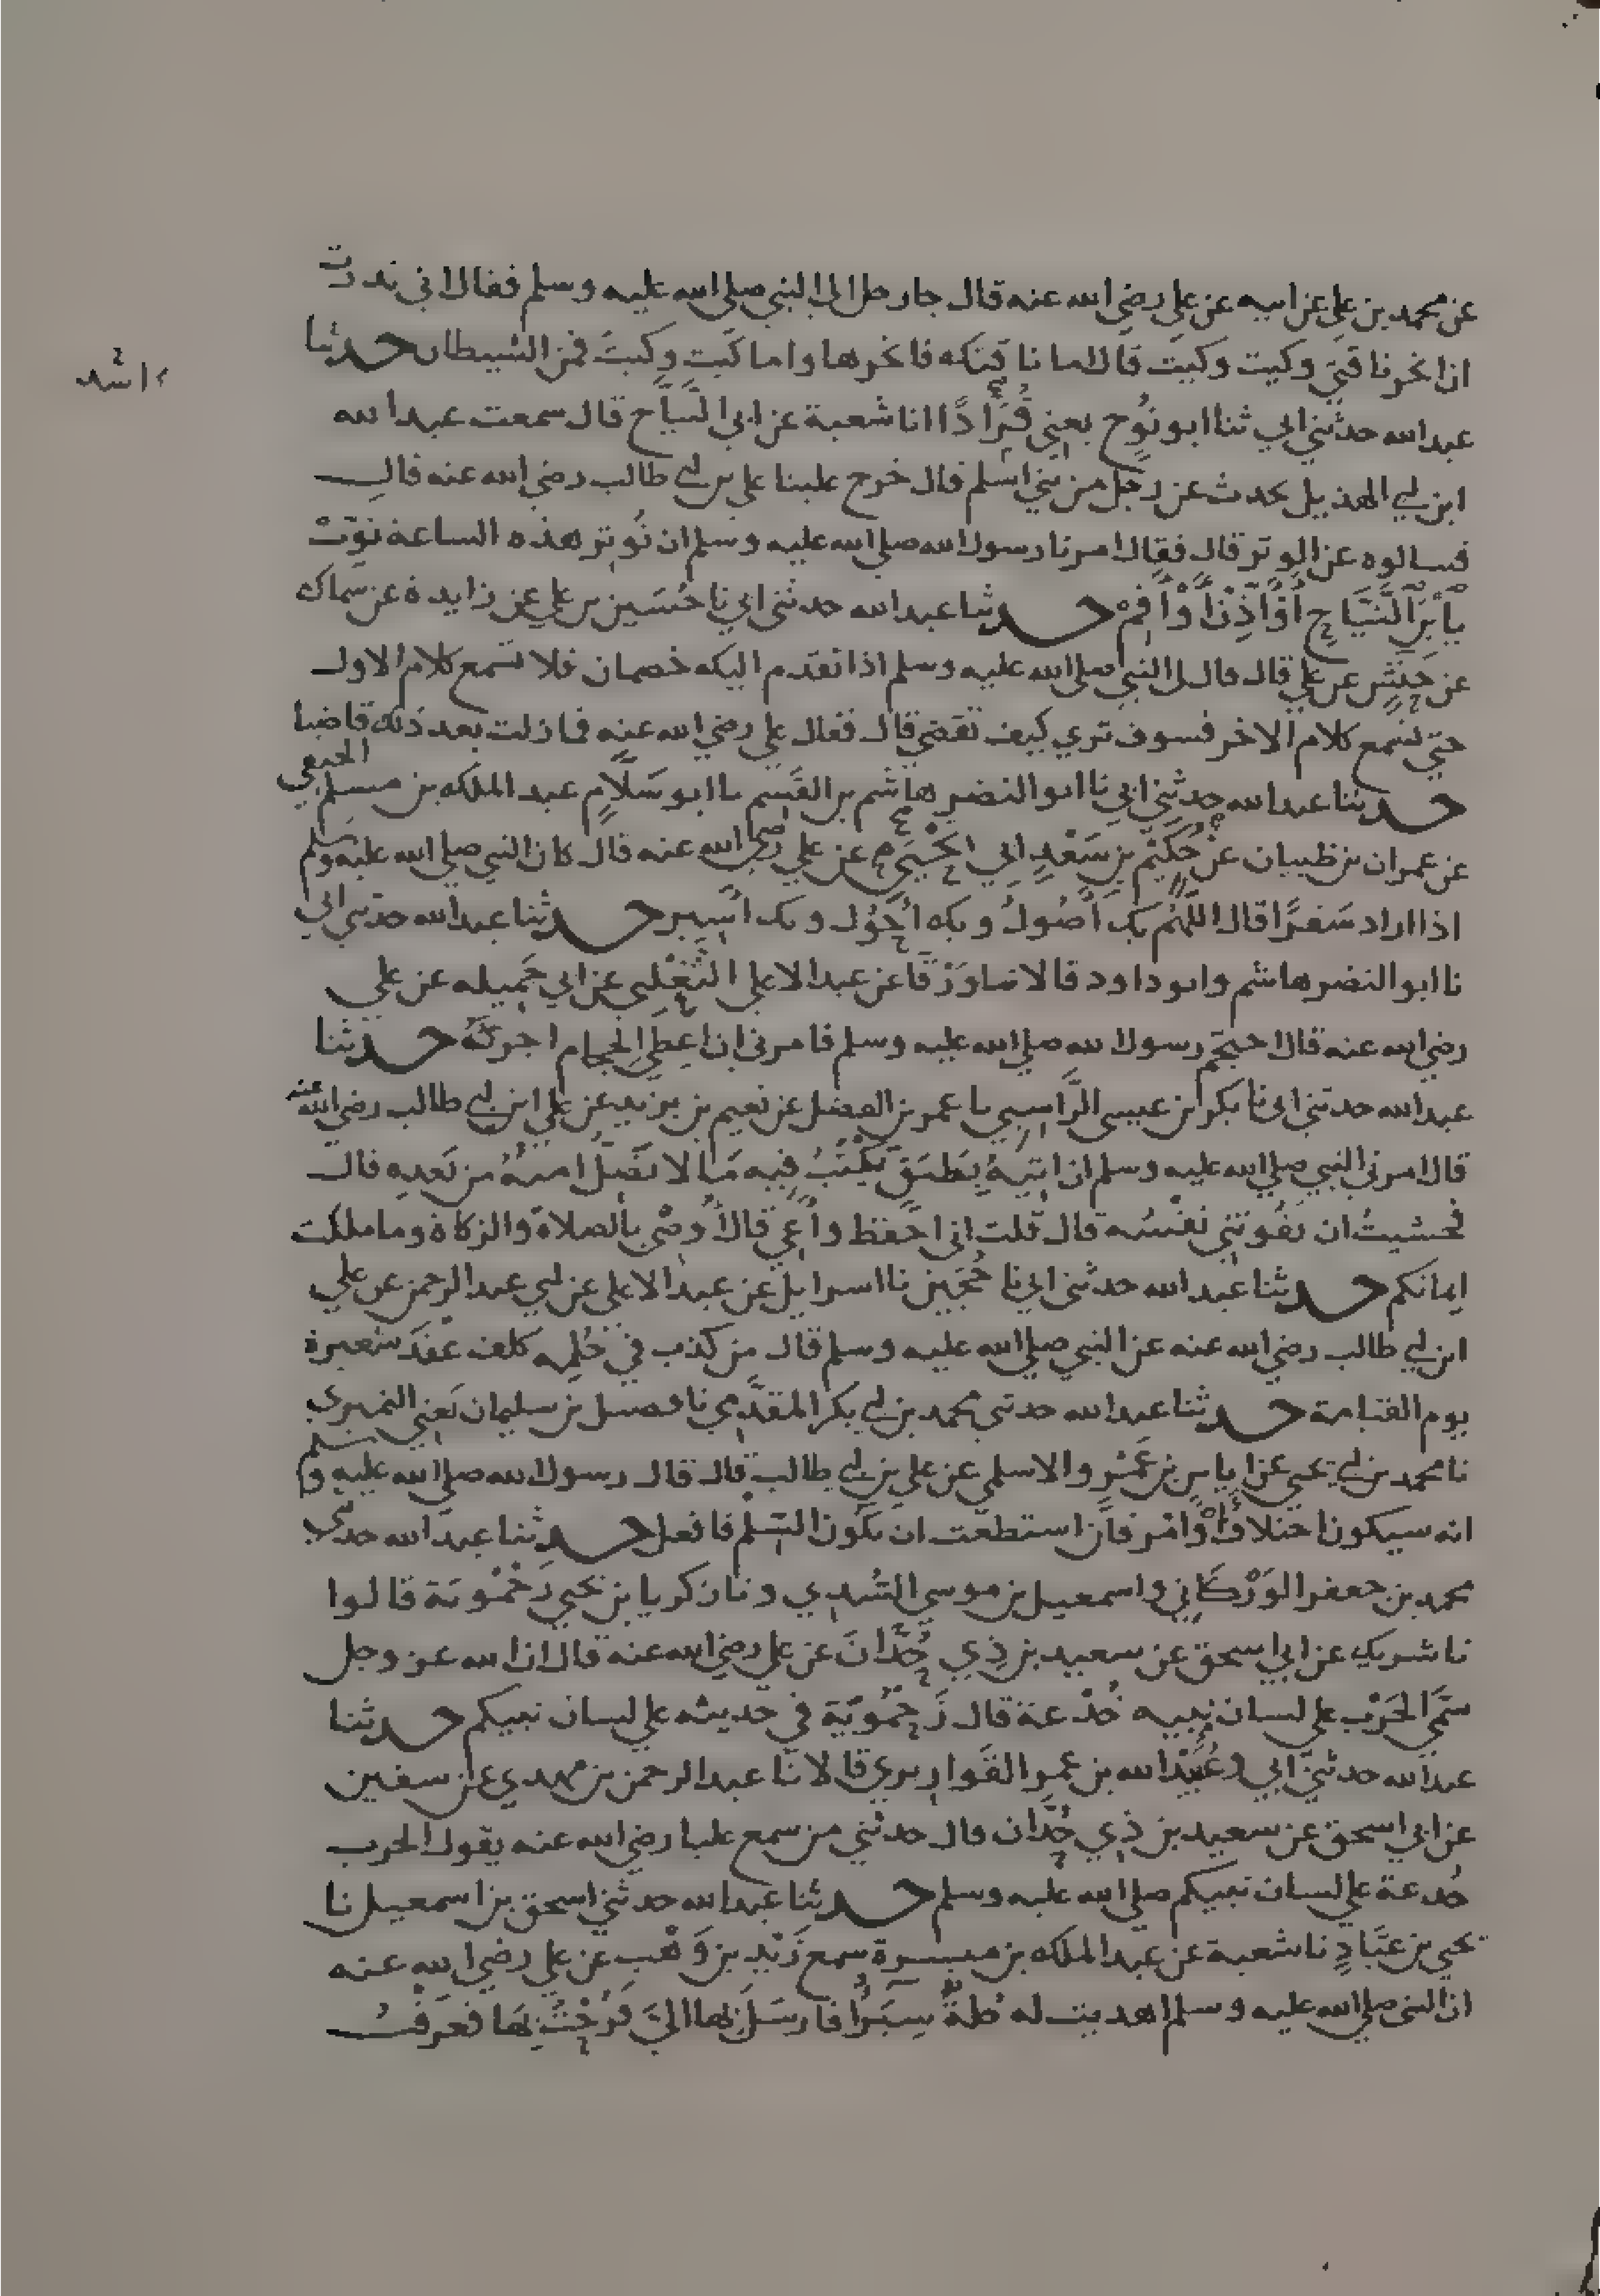 عن محمد بن علي عن ابيه عن علي رضي الله عنه قال جا رجل الى النبي صلى الله عليه وسلم فقال اني نذرت
ان انحر ناقتي وكيت وكيت قال اما ناقتك فانحرها واما كيت وكيت فمن الشيطان حدثنا
عبد الله حدثني ابي ثنا ابو نوح يعني قرادا انا شعبة عن ابي التياح قال سمعت عبد الله
ابن ابي الهذيل يحدث عن رجل من بني اسلم قال خرج علينا علي بن ابي طالب رضي الله عنه قال
فسالوه عن الوتر قال فقال امرنا رسول الله صلى الله عليه وسلم ان نوتر هذه الساعة ثوب
يا بن التياح او اذن او اقم حدثنا عبد الله حدثني ابي نا حسين بن علي عن زايدة عن سماك
عن حنش عن علي قال قال لي النبي صلى الله عليه وسلم اذا تقدم اليك خصمان فلا تسمع كلام الاول
حتى تسمع كلام الاخر فسوف ترى كيف تقضي قال فقال علي رضي الله عنه فما زلت بعد ذلك قاضيا
حدثنا عبد الله حدثني ابي نا ابو النضر هاشم بن القسم نا ابو سلام عبد الملك بن مسلم الحنفي
عن عمران بن ظبيان عن حكيم بن سعد ابي تحيى عن علي رضي الله عنه قال كان النبي صلى الله عليه وسلم
اذا اراد سفرا قال اللهم بك اصول وبك احول وبك اسير حدثنا عبد الله حدثني ابي
نا ابو النضر هاشم وابو داود قالا نا ورقا عن عبد الاعلى الثعلبي عن ابي جميله عن علي
رضي الله عنه قال احتجم رسول الله صلى الله عليه وسلم فامرني ان اعطي الحجام اجرته حدثنا
عبد الله حدثني ابي نا بكر بن عيسى الراسبي نا عمر بن الفضل عن نعيم بن يزيد عن علي ابن ابي طالب رضي الله عنه
قال امرني النبي صلى الله عليه وسلم ان اتيه بطبق يكتب فيه ما لا تضل امته من بعده قال
فخشيت ان تفوتني نفسه قال قلت اني احفظ واعي قال اوصي بالصلاة والزكاة وما ملكت
ايمانكم حدثنا عبد الله حدثني ابي نا حجين نا اسرايل عن عبد الاعلى عن ابي عبد الرحمن عن علي
ابن ابي طالب رضي الله عنه عن النبي صلى الله عليه وسلم قال من كذب في حلمه كلف عقد شعيرة
يوم القيامة حدثنا عبد الله حدثني محمد بن ابي بكر المقدمي نا فضيل بن سليمان يعني النميري
نا محمد بن ابي يحيى عن اياس بن عمرو الاسلمي عن علي بن ابي طالب قال قال رسول الله صلى الله عليه وسلم
انه سيكون اختلاف او امر فان استطعت ان تكون السلم فافعل حدثنا عبد الله حدثني
محمد بن جعفر الوركاني واسمعيل بن موسى السدي ونا زكريا بن يحيى زحمويه قالوا
نا شريك عن ابي اسحق عن سعيد بن ذي حدان عن علي رضي الله عنه قال ان الله عز وجل
سمى الحرب على لسان نبيه خدعة قال زحمويه في حديثه على لسان نبيكم حدثنا
عبد الله حدثني ابي وعبيد الله بن عمر القواريري قالا نا عبد الرحمن بن مهدي عن سفين
عن ابي اسحق عن سعيد بن ذي حدان قال حدثني من سمع عليا رضي الله عنه يقول الحرب
خدعة على لسان نبيكم صلى الله عليه وسلم حدثنا عبد الله حدثني اسحق بن اسمعيل نا
يحيى بن عباد نا شعبة عن عبد الملك بن ميسرة سمع زيد بن وهب عن علي رضي الله عنه
ان النبي صلى الله عليه وسلم اهديت له حلة سيرا فارسل بها الي فرحت بها فعرفت